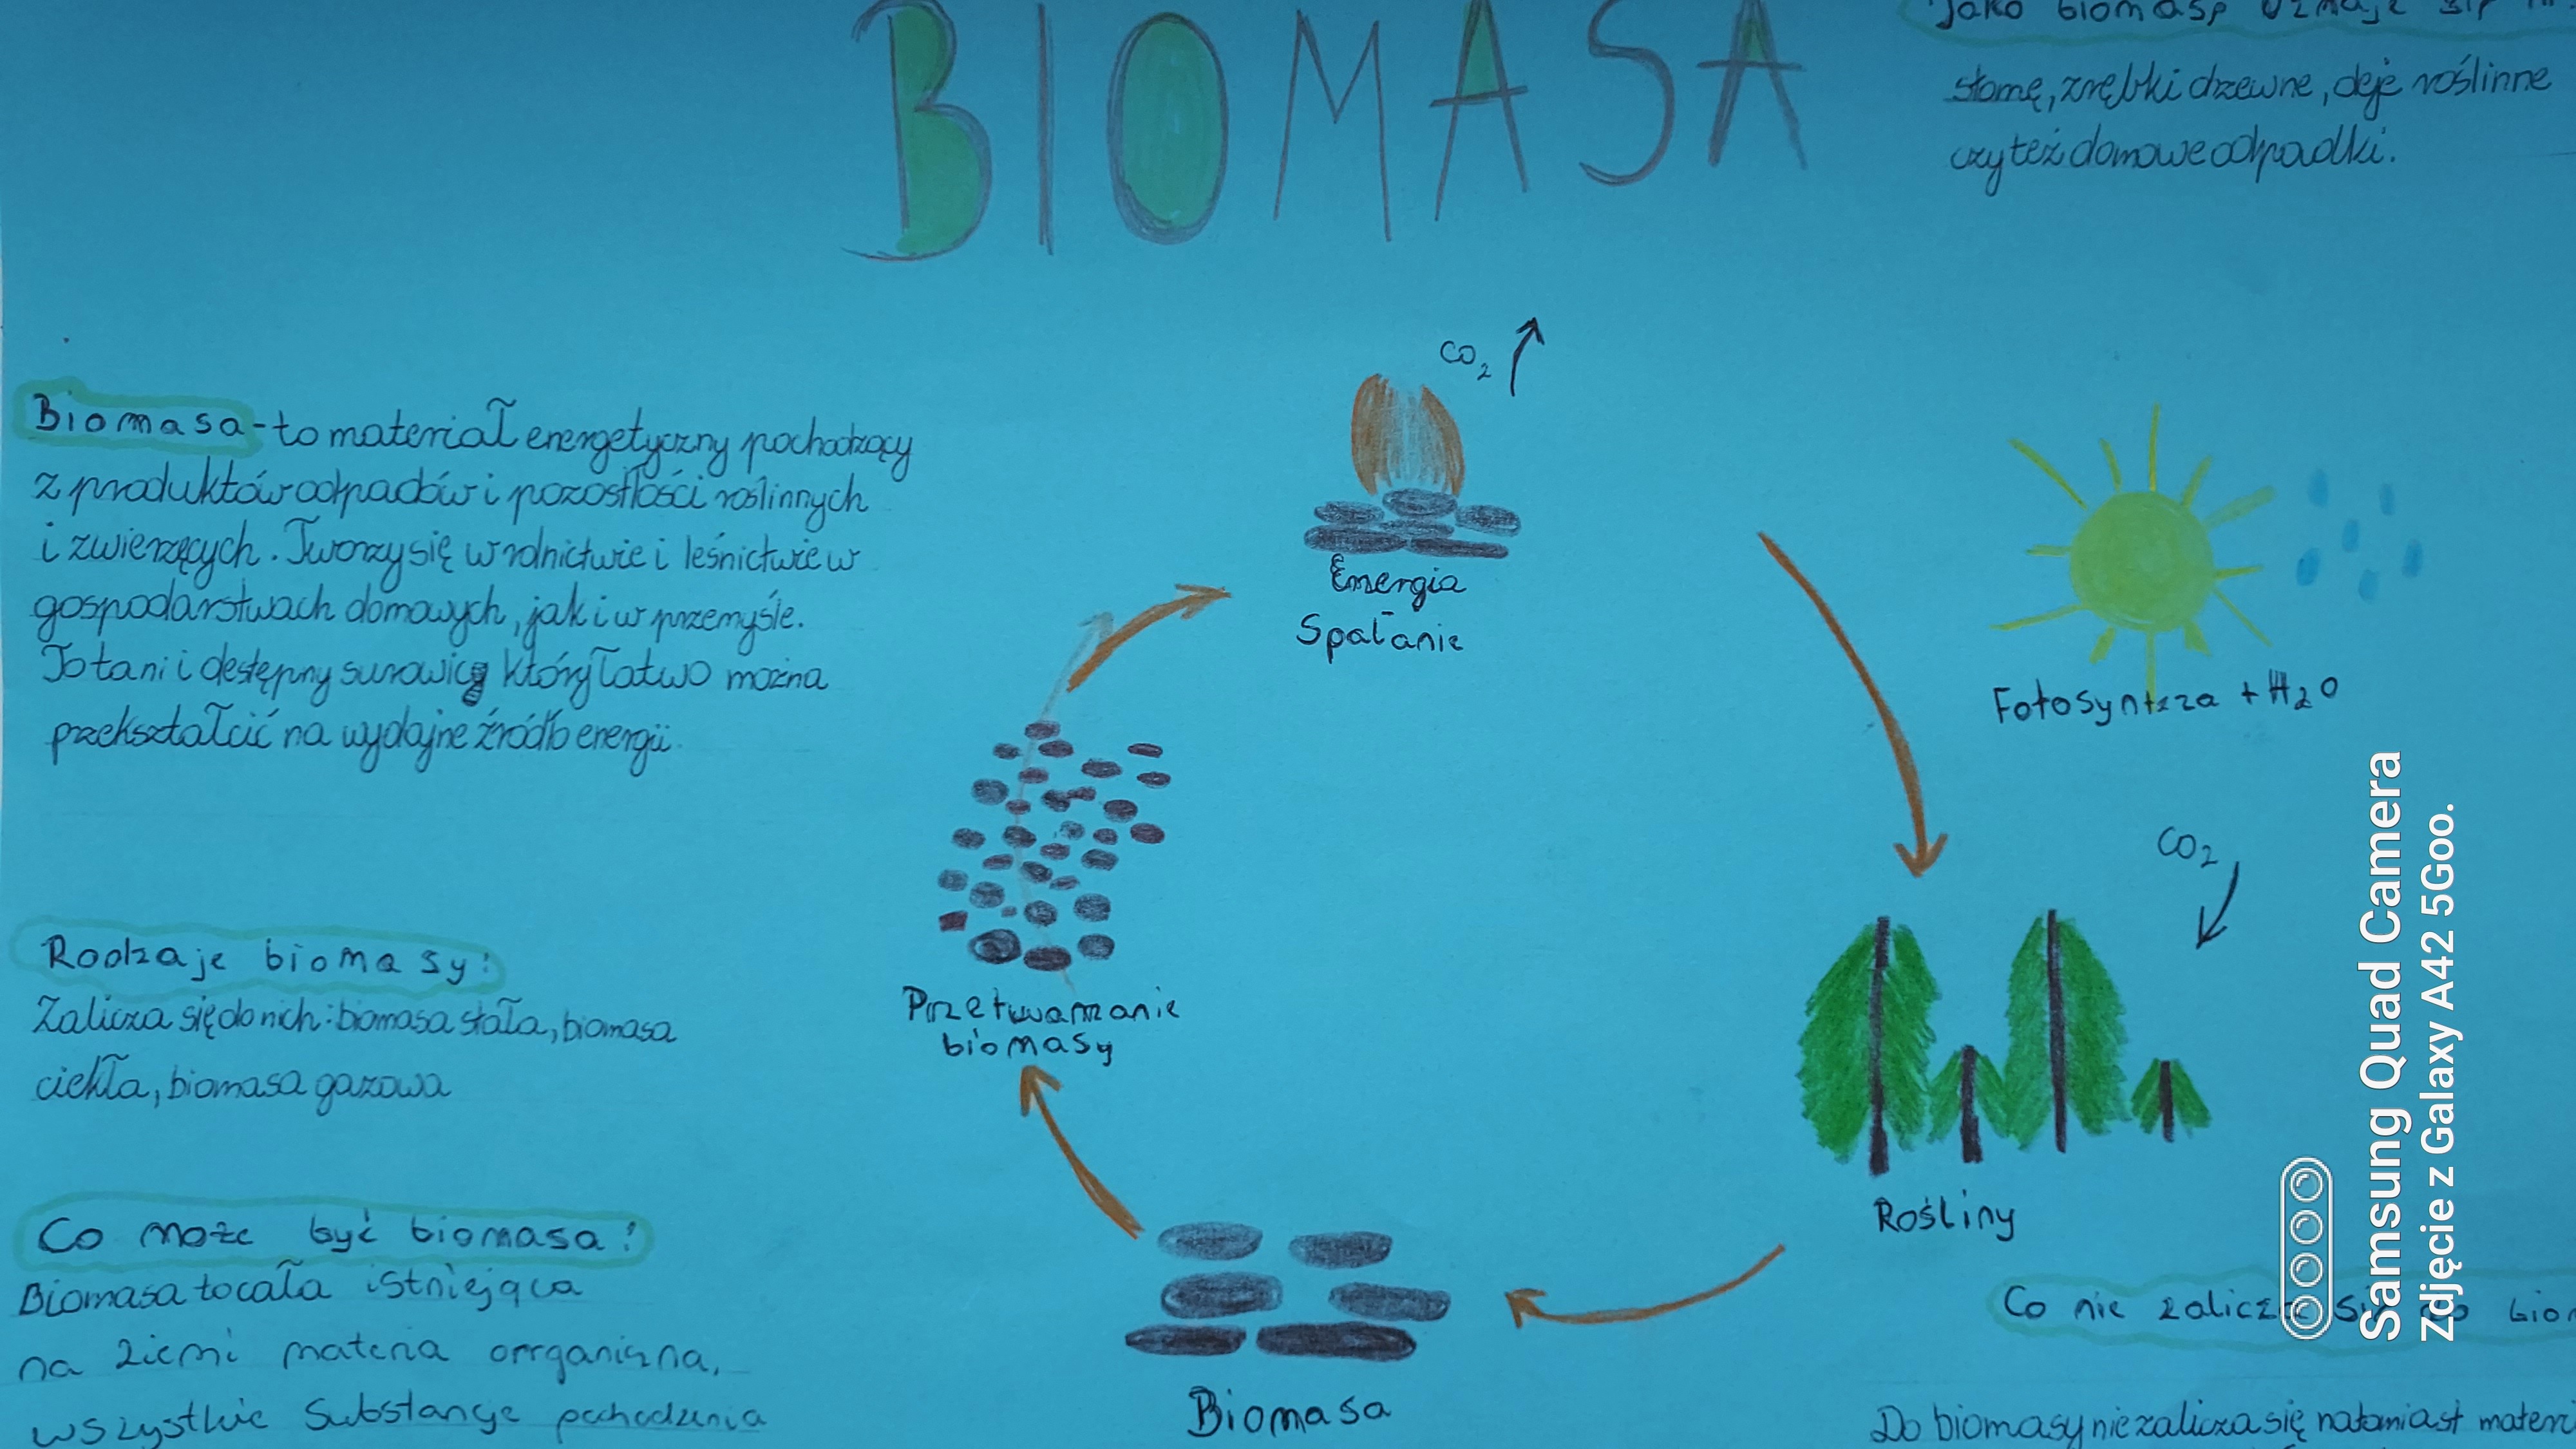 BIOMASA
Jako biomasę uznaje się
słomę, zrębki drzewne, oleje roślinne
czy też domowe odpadki.
Biomasa - to materiał energetyczny pochodzący
z produktów odpadów i pozostłości roślinnych
i zwierzęcych. Tworzy się w rolnictwie i leśnictwie w
gospodarstwach domowych, jak i w przemyśle.
To tani i destępny surowicy który łatwo można
przekształcić na wydajne źródło energii
CO2
Energia
Spałanie
Fotosynteza + H2O
CO2
Rośliny
Przetwarzanie
biomasy
Biomasa
Rodzaje biomasy:
Zalicza się do nich: biomasa stała, biomasa
ciekła, biomasa gazowa
Co może być biomasa?
Biomasa to cała istniejąca
na Ziemi materia orrganiczna,
wszystkie Substancje pochodzenia
Co nie zalicza się do
Do biomasy nie zalicza się natomiast
Samsung Quad Camera
Zdjęcie z Galaxy A42 5Goo.